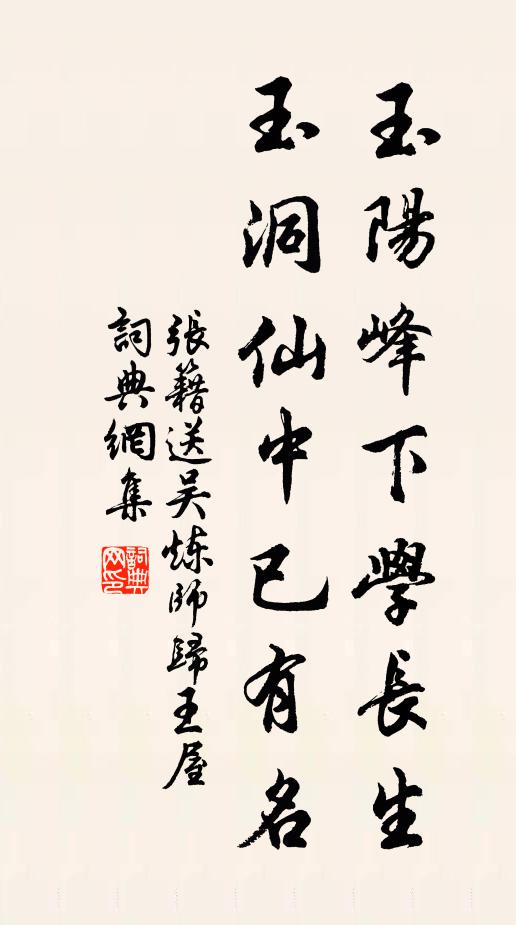 玉陽峰下學長生
玉洞仙中已有名
張籍送吴煉師歸王屋
詞典網集
詞典网印